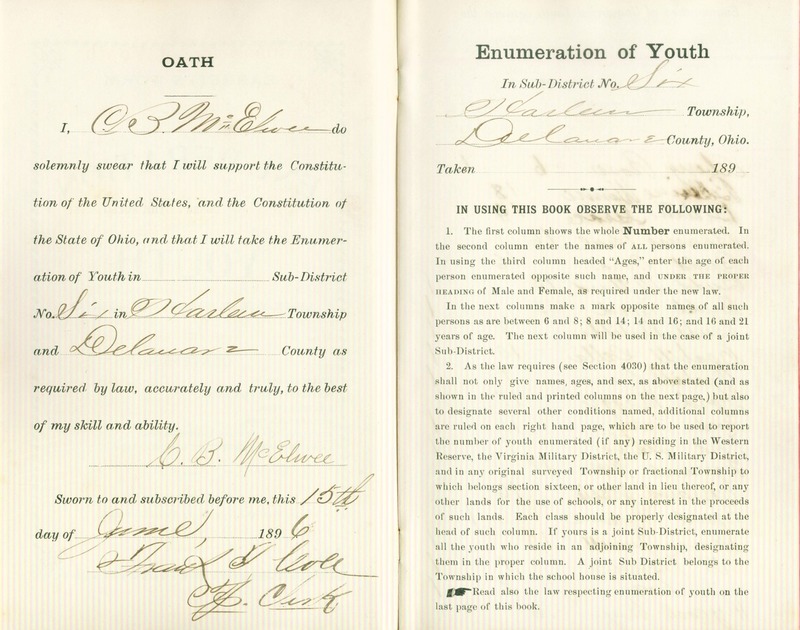 OATH
I, C. B. McElwee do
solemnly swear that I will support the Constitu-
tion of the United States, and the Constitution of
the State of Ohio, and that I will take the Enumer-
ation of Youth in Sub-District
No. Six in Harlem Township
and Delaware County as
required by law, accurately and truly, to the best
of my skill and ability.
C. B. McElwee
Sworn to and subscribed before me, this 15th
day of June, 1896
Frank
Clerk
Enumeration of Youth
In Sub-District No. Six
Harlem Township,
Delaware County, Ohio.
Taken 189
IN USING THIS BOOK OBSERVE THE FOLLOWING:
1. The first column shows the whole Number enumerated. In
the second column enter the names of ALL persons enumerated.
In using the third column headed "Ages," enter the age of each
person enumerated opposite such name, and UNDER THE PROPER
HEADING of Male and Female, as required under the new law.
In the next columns make a mark opposite names of all such
persons as are between 6 and 8; 8 and 14; 14 and 16; and 16 and 21
years of age. The next column will be used in the case of a joint
Sub-District.
2. As the law requires (see Section 4030) that the enumeration
shall not only give names, ages, and sex, as above stated (and as
shown in the ruled and printed columns on the next page,) but also
to designate several other conditions named, additional columns
are ruled on each right hand page, which are to be used to report
the number of youth enumerated (if any) residing in the Western
Reserve, the Virginia Military District, the U. S. Military District,
and in any original surveyed Township or fractional Township to
which belongs section sixteen, or other land in lieu thereof, or any
other lands for the use of schools, or any interest in the proceeds
of such lands. Each class should be properly designated at the
head of such column. If yours is a joint Sub-District, enumerate
all the youth who reside in an adjoining Township, designating
them in the proper column. A joint Sub District belongs to the
Township in which the school house is situated.
Read also the law respecting enumeration of youth on the
last page of this book.